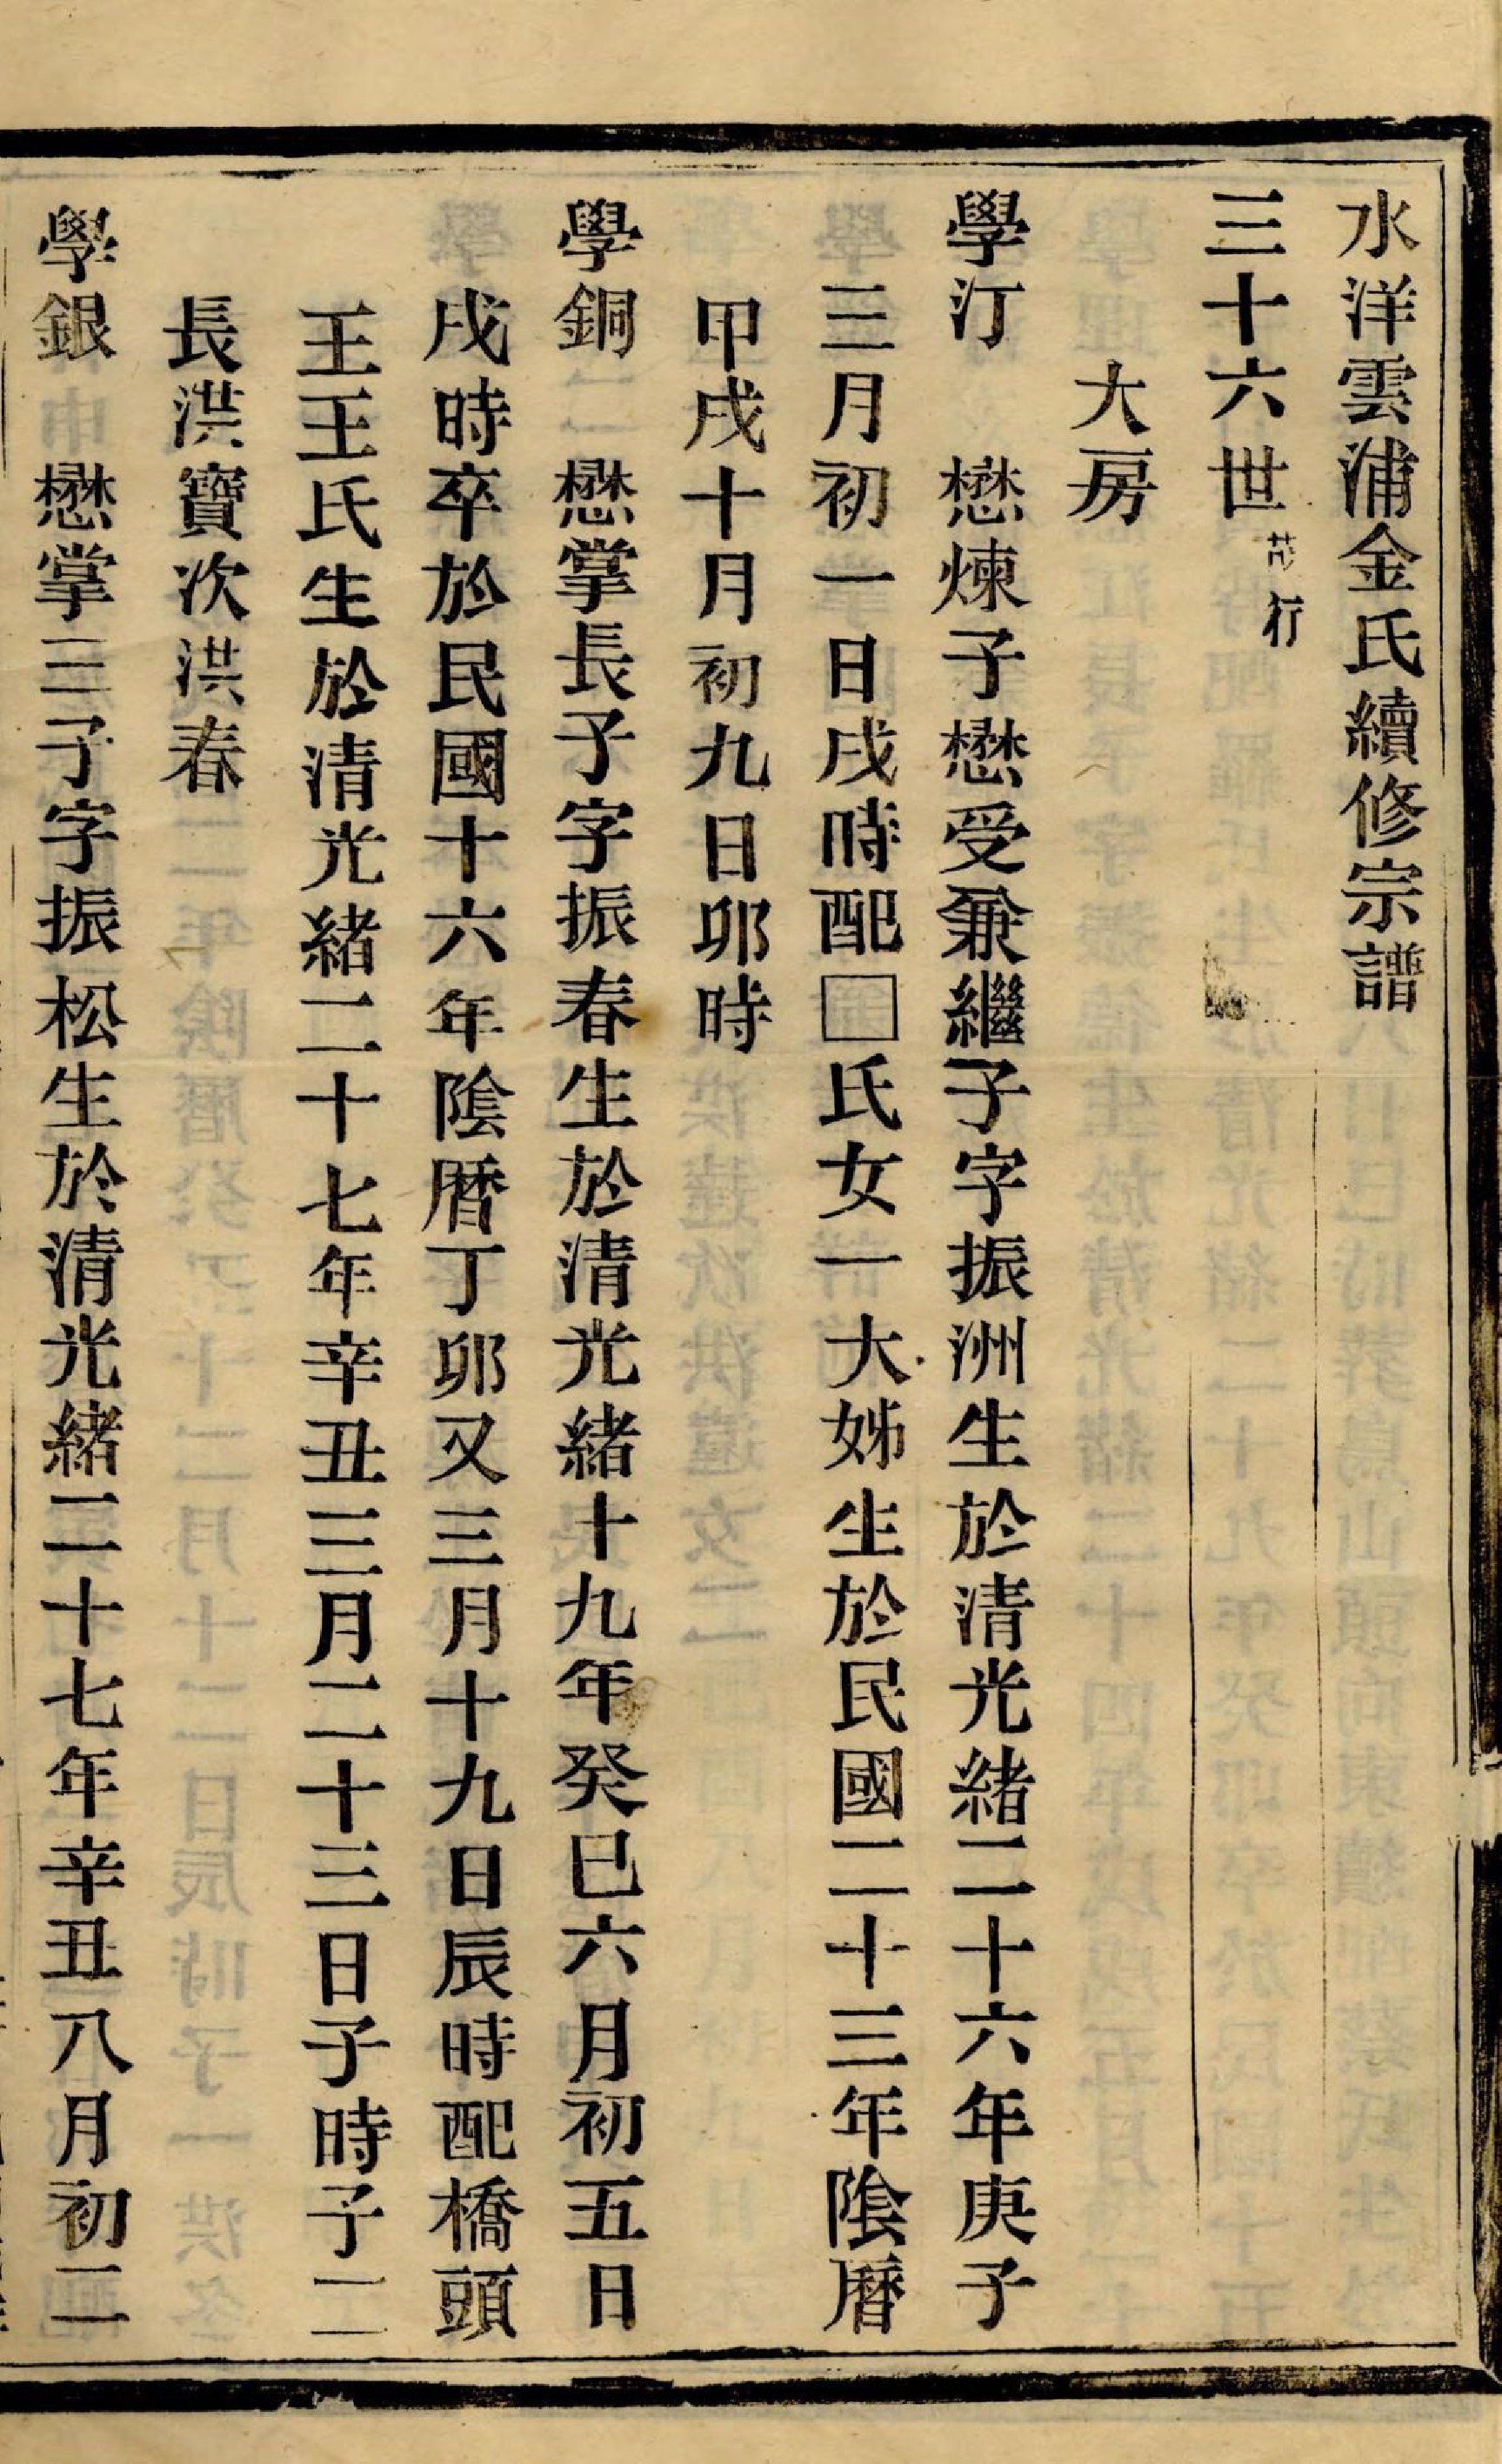 水洋雲浦金氏續修宗譜
三十六世茂行
大房
學汀　懋煉子懋受兼繼子字振洲生於清光緒二十六年庚子
三月初一日戌時配□氏女一大姊生於民國二十三年陰曆
甲戌十月初九日卯時
學銅　懋掌長子字振春生於清光緒十九年癸巳六月初五日
戌時卒於民國十六年陰曆丁卯又三月十九日辰時配橋頭
王王氏生於清光緒二十七年辛丑三月二十三日子時子二
長洪寶次洪春
學銀　懋掌三子字振松生於清光緒二十七年辛丑八月初二